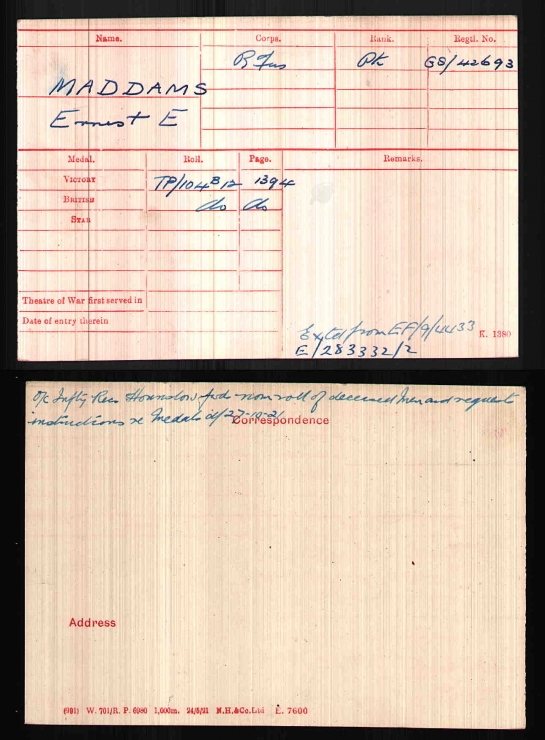 Name. Corps. Rank. Regtl. No.
R Fus Pte GS/42693
MADDAMS
Ernest E
Medal. Roll. Page. Remarks.
VICTORY TP/104 B 12 1394
BRITISH do do
STAR
Theatre of War first served in
Date of entry therein
K. 1380
E/283332/2
O/c Infty Rec Hounslow fwd nom roll of deceased men and requests
instructions re Medals d/ 27-10-21
Correspondence
Address
(991) W. 701/R. P. 6980 1,000m. 24/5/21 N.H.&Co.Ltd E. 7600